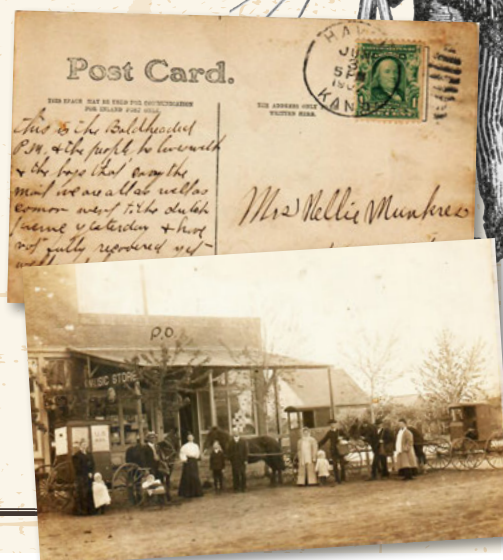 Post Card.
THIS SPACE MAY BE USED FOR COMMUNICATION
THE ADDRESS ONLY
WRITTEN HERE.
This is the Baldheaded
P.M. & the people he lives with
& the boys that carry the
mail we are all as well as
common went to the dutch
yesterday & have
not fully recovered yet
Mrs Nellie Munkres
HA
JU
KAN
P.O.
MUSIC STORE